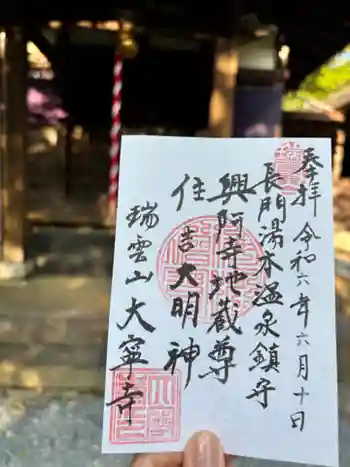 奉拝 令和六年六月十日
長門湯本温泉鎮守
興阿寺地蔵尊
住吉大明神
瑞雲山大寧寺